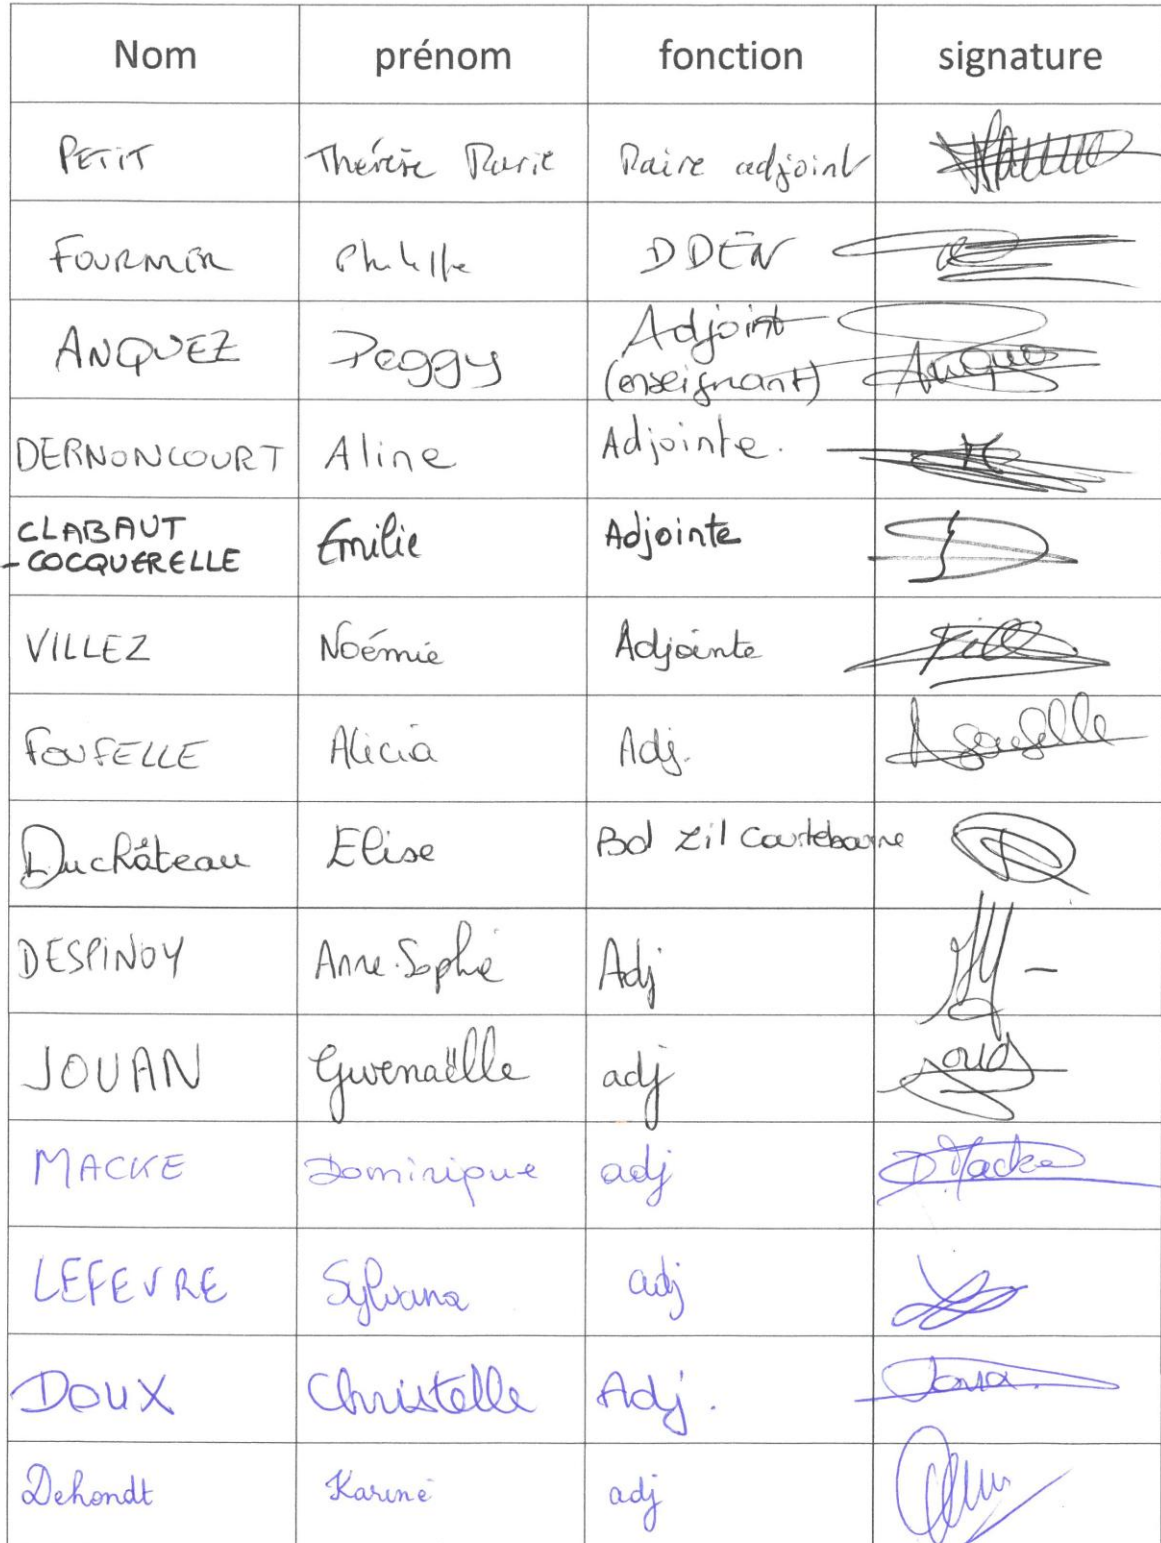 Nom prénom fonction signature
PETIT Thérèse Marie Maire adjoint
FOURNIER Philippe DDEN
ANQUEZ Peggy Adjoint
(enseignant) Anquez
DERNONCOURT Aline Adjointe.
CLABAUT
-COCQUERELLE Emilie Adjointe
VILLEZ Noémie Adjointe
FOUFELLE Alicia Adj. Foufelle
Duchâteau Elise Bd Courtebourne
DESPINOY Anne-Sophie Adj
JOUAN Gwenaëlle adj
MACKE Dominique adj DMacke
LEFEVRE Sylvana adj
DOUX Christelle Adj.
Dehondt Karine adj